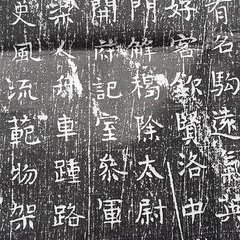 有名駒遠氣英
好客欽賢洛中
門解褐除太尉
開府記室參軍
人舟車踵路
風流範物架